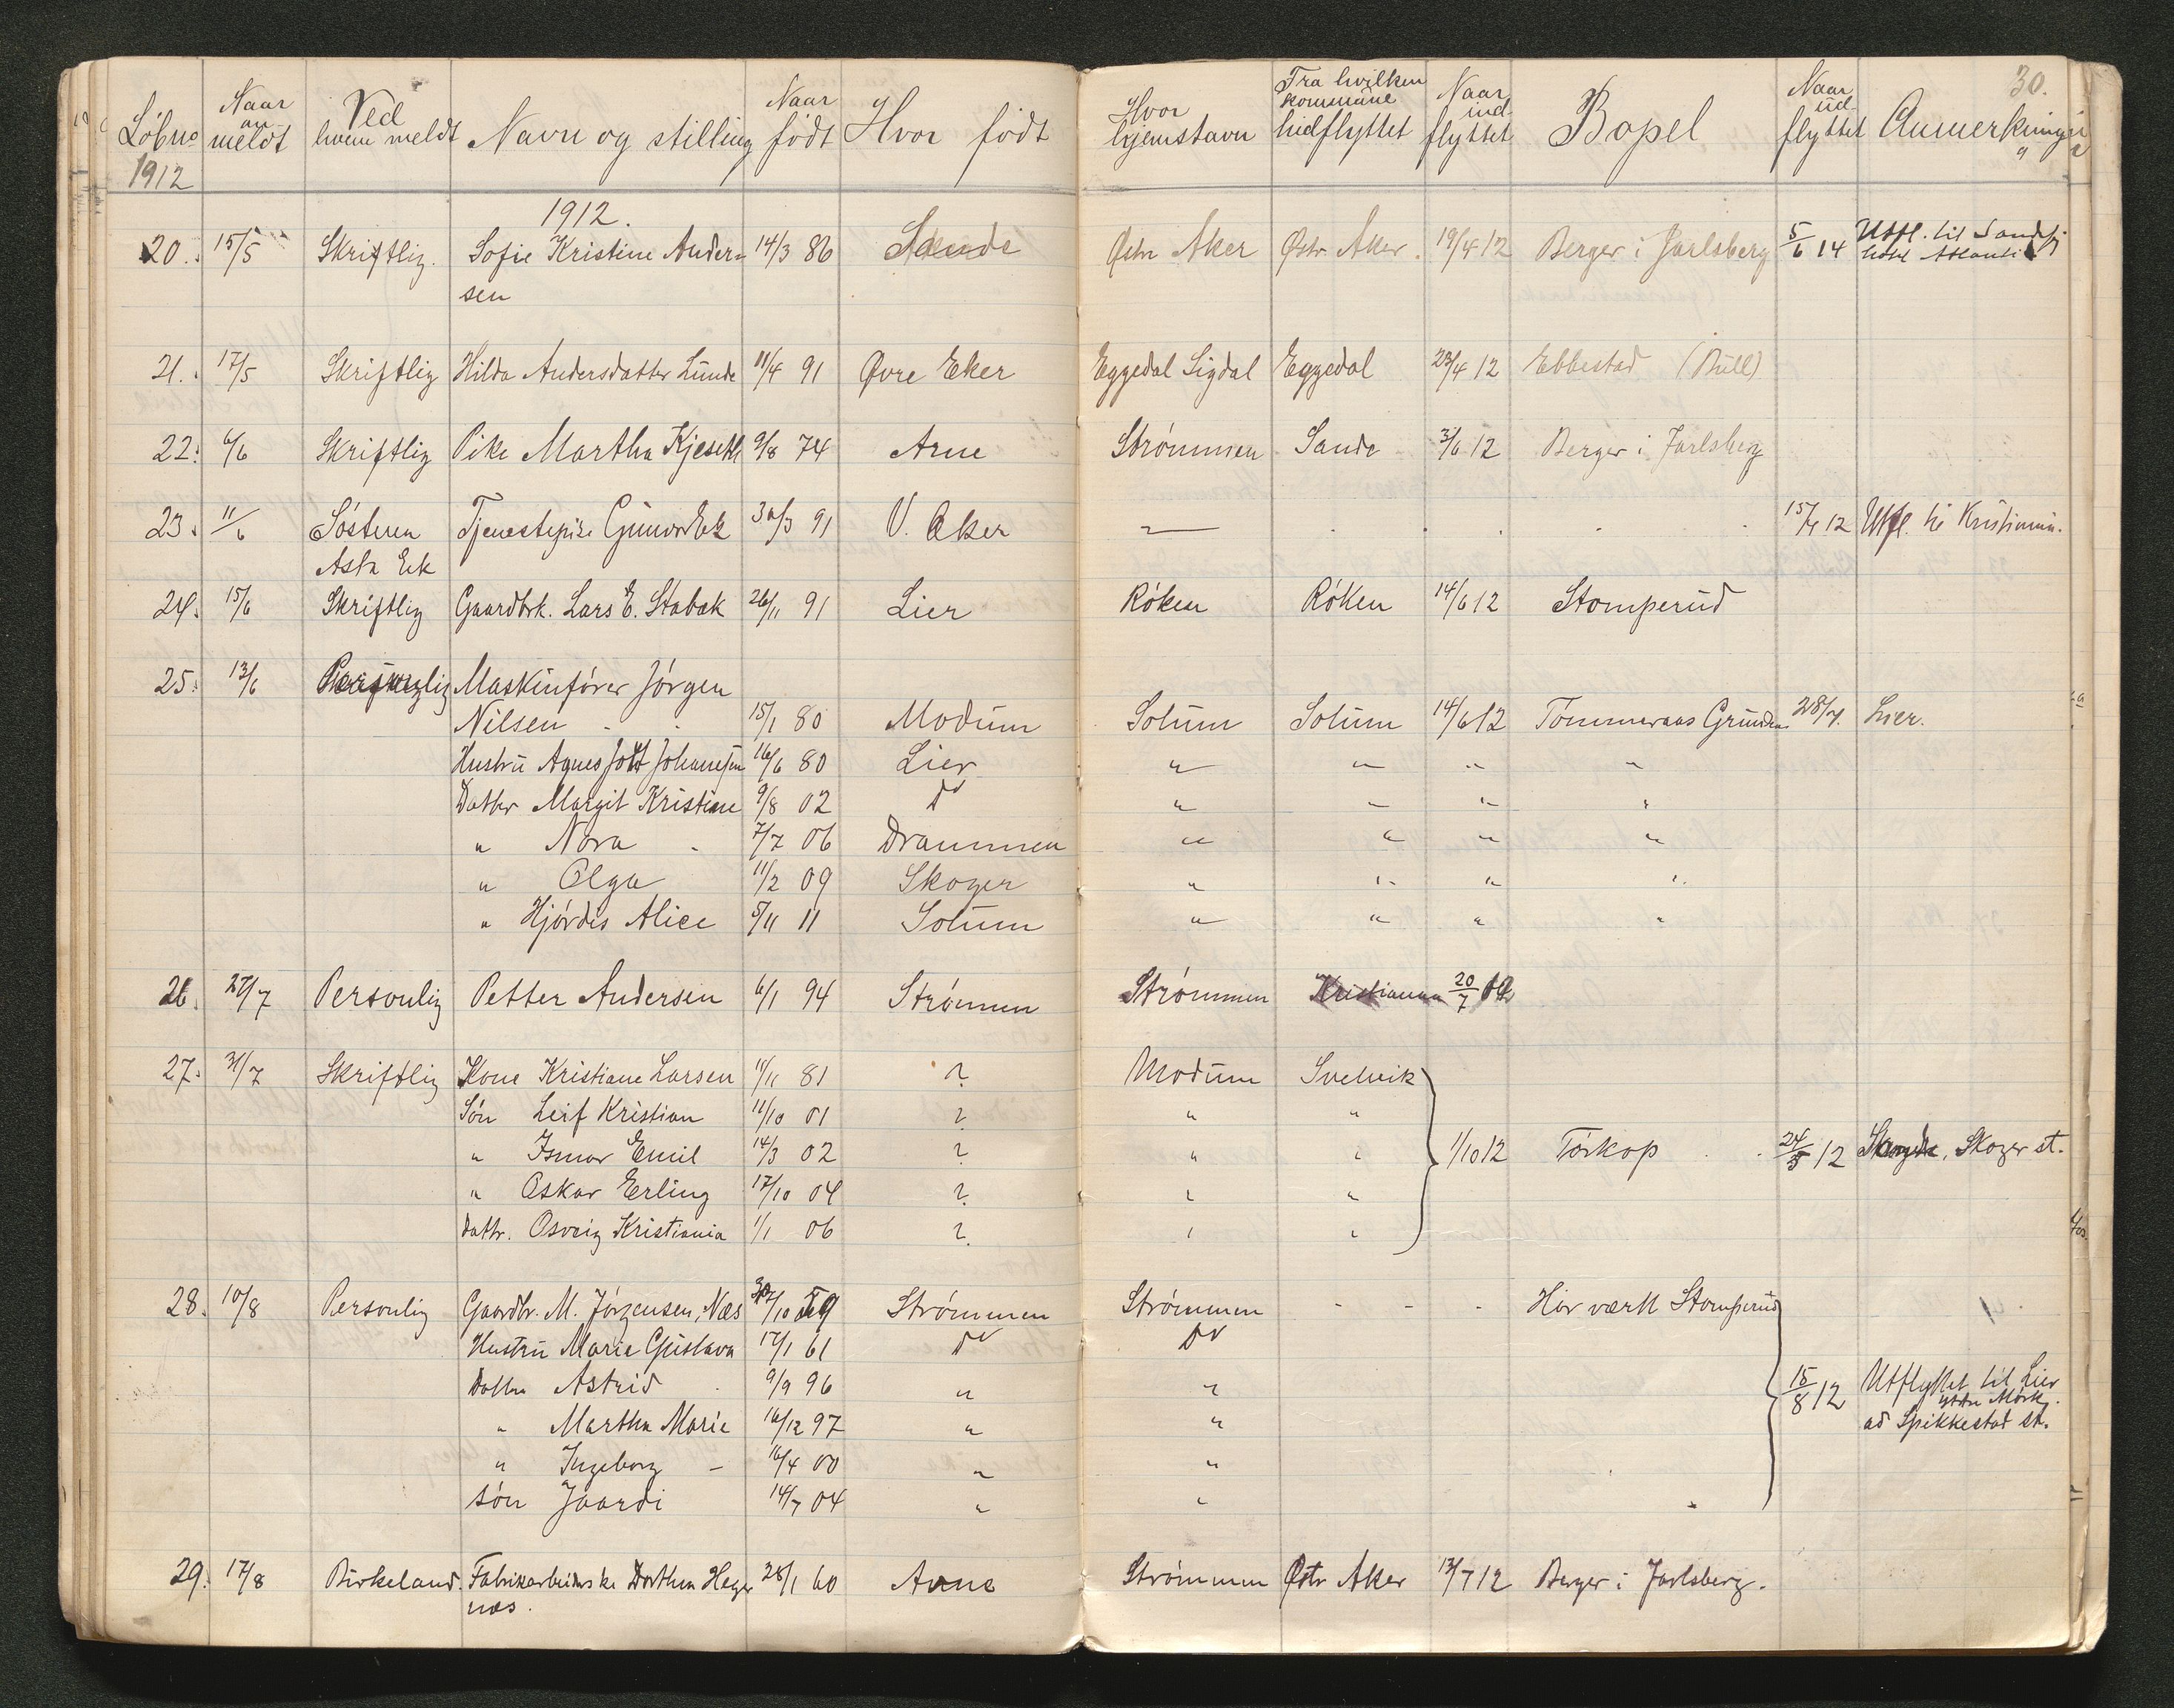 30.
Löbno Naar anmeldt Ved hvem meldt Navn og stilling Naar födt Hvor födt Hvor hjemstavn Fra hvilken kommune hidflyttet Naar indflyttet Bopel Naar udflyttet Anmerkning
1912
1912.
20. 15/5 Skriftlig. Sofie Kristine Ander= 14/3 86 Sande Østr Aker Østr Aker. 19/4 12 Berger i Jarlsberg 5/6 14 Utfl. til
sen
21. 17/5 Skriftlig Hilda Andersdatter Lunde 11/4 91 Øvre Eker Eggedal Sigdal Eggedal 23/4 12 Ebbestad (Bull)
22. 6/6 Skriftlig Pike Martha Kjeseth 9/8 74 Arne Strömmen Sande 3/6 12 Berger i Jarlsberg
23. 11/6 Söstern Tjenestepike Gunvor Ek 30/3 91 V. Aker 15/7 12 Utfl. til Kristiania.
Asta Ek
24. 15/6 Skriftlig Gaardbrk. Lars E. Stabak 26/11 91 Lier Röken Röken 14/6 12 Stomperud
25. 13/6 Personlig Maskinförer Jörgen
Nilsen 15/1 80 Modum Solum Solum 14/6 12 Tömmeraas Grunden 28/7. Lier.
Hustru Agnes født Johannesen 16/6 80 Lier " " " "
Datter Margit Kristiane 9/8 02 do " " " "
" Nora 7/7 06 Drammen " " " "
" Olga 11/2 09 Skoger " " " "
" Hjördis Alice 5/11 11 Solum " " " "
26. 27/7 Personlig Petter Andersen 6/1 94 Strömmen Strömmen Kristiania 20/7 12
27. 31/7 Skriftlig Kone Kristiane Larsen 11/11 81 ? Modum Svelvik
Sön Leif Kristian 11/10 01 ? " "
" Ismar Emil 14/3 02 ? " " 1/10 12 Törkop 24/5 12 Skoger st.
" Oskar Erling 17/10 04 ? " "
Dattr. Osveig Kristiania 1/1 06 ? " "
28. 10/8 Personlig Gaardbr. M. Jörgensen, Næs 10 59 Strömmen Strömmen - - - Har vært Stomperud
Hustru Marie Gustava 17/1 61 do do
Datter Astrid 9/9 96 " " 15/8 12 Utflyttet til Lier
" Martha Marie 16/12 97 " " ytter Mörk.
ad Spikkestad st.
" Ingeborg - 16/4 00 " "
Sön Jaardi 14/7 04 " "
29. 17/8 Birkeland. Fabrikarbeiderske Dorthea Heg= 28/1 60 Arne Strömmen Østr Aker 13/7 12 Berger i Jarlsberg.
næs.